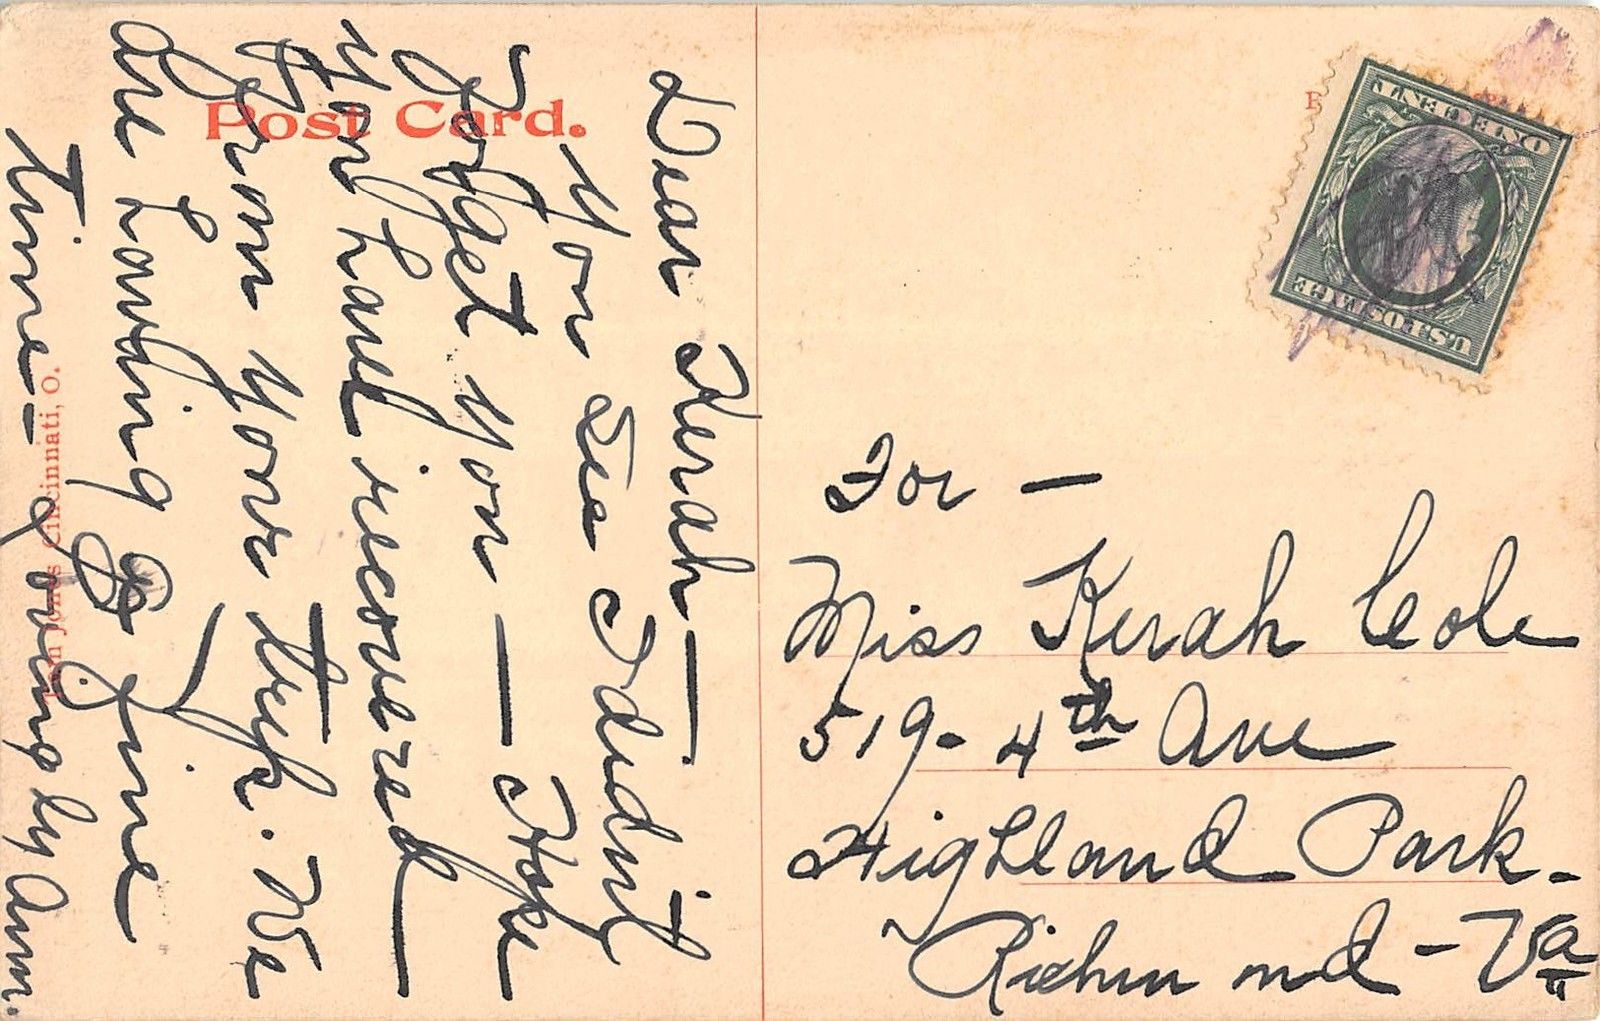 Post Card.
Dear Kerah—
You see I didn't
forget you — Hope
you have recovered
from your trip. We
are having a fine
time— Lovingly Ann.
Cincinnati, O.
U.S. POSTAGE
ONE CENT
For —
Miss Kerah Cole
519 - 4th Ave
Highland Park -
Richmond - Va